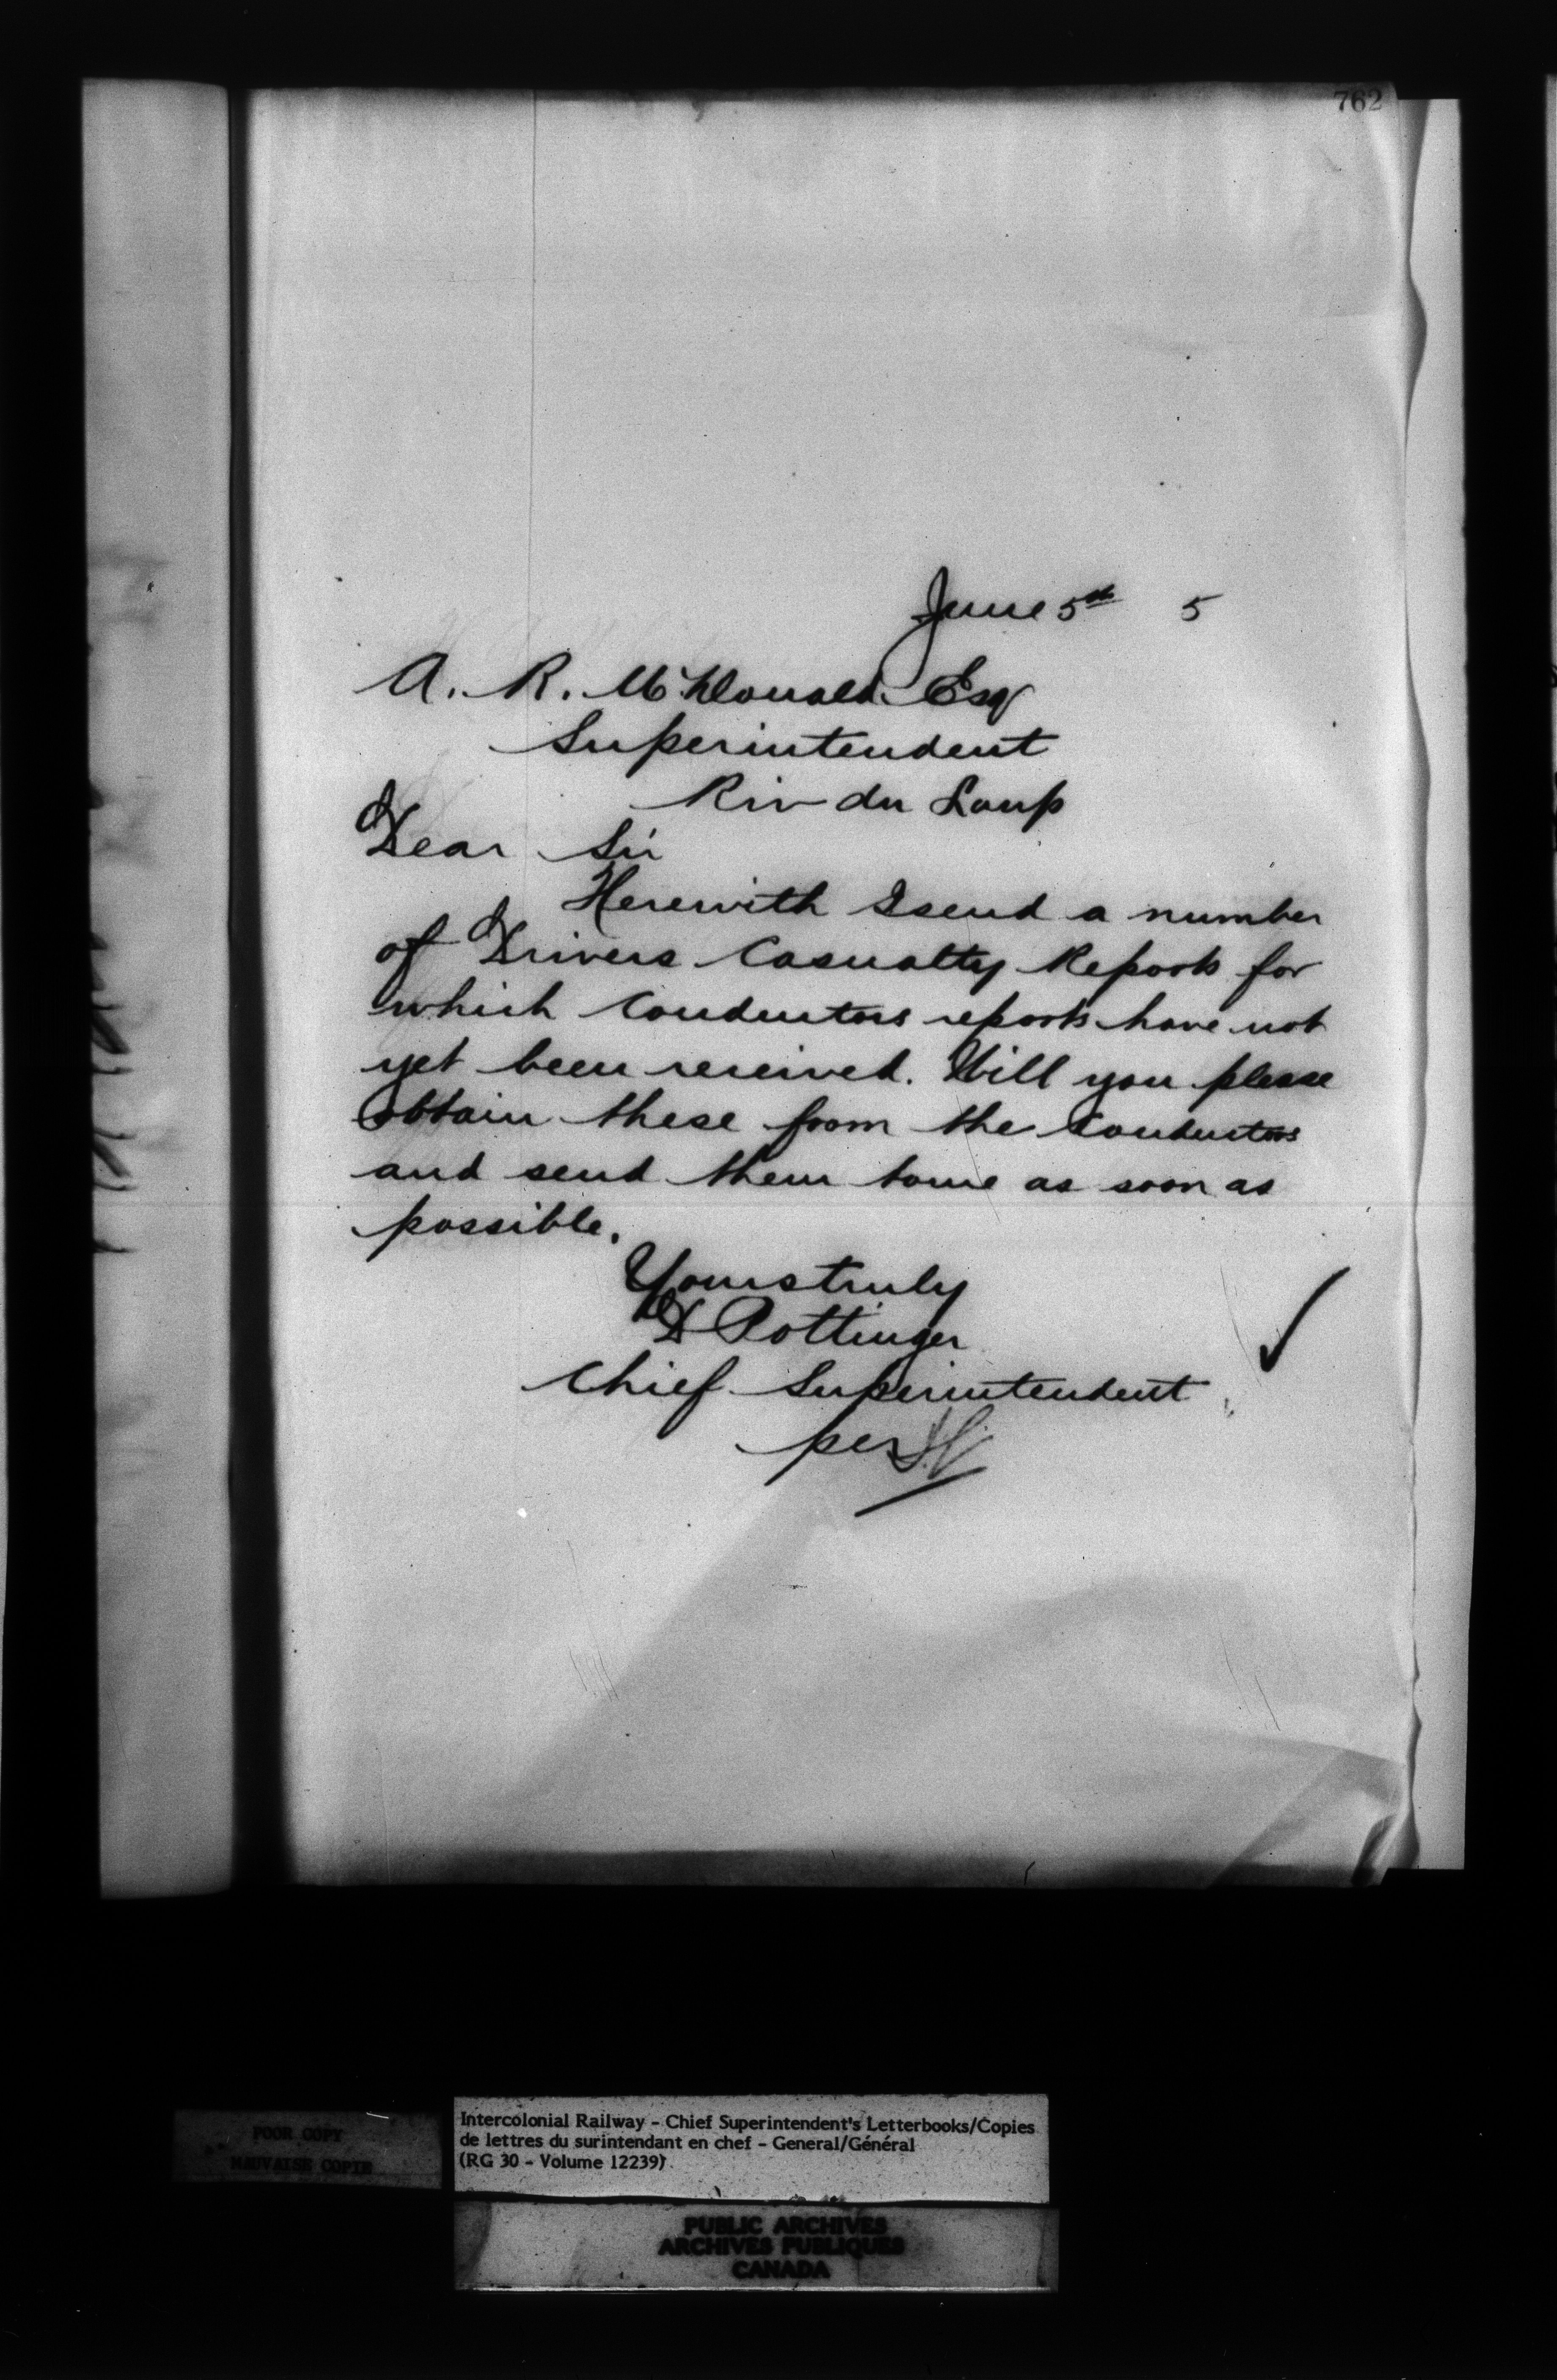 762
June 5th 5
A. R. McDonald Esq
Superintendent
Riv du Loup
Dear Sir
Herewith I send a number
of Drivers Casualty Reports for
which Conductors reports have not
yet been received. Will you please
obtain these from the Conductors
and send them to me as soon as
possible.
Yours truly
D Pottinger
Chief Superintendent
per
POOR COPY
MAUVAISE COPIE
Intercolonial Railway - Chief Superintendent's Letterbooks/Copies
de lettres du surintendant en chef - General/Général
(RG 30 - Volume 12239)
PUBLIC ARCHIVES
ARCHIVES PUBLIQUES
CANADA